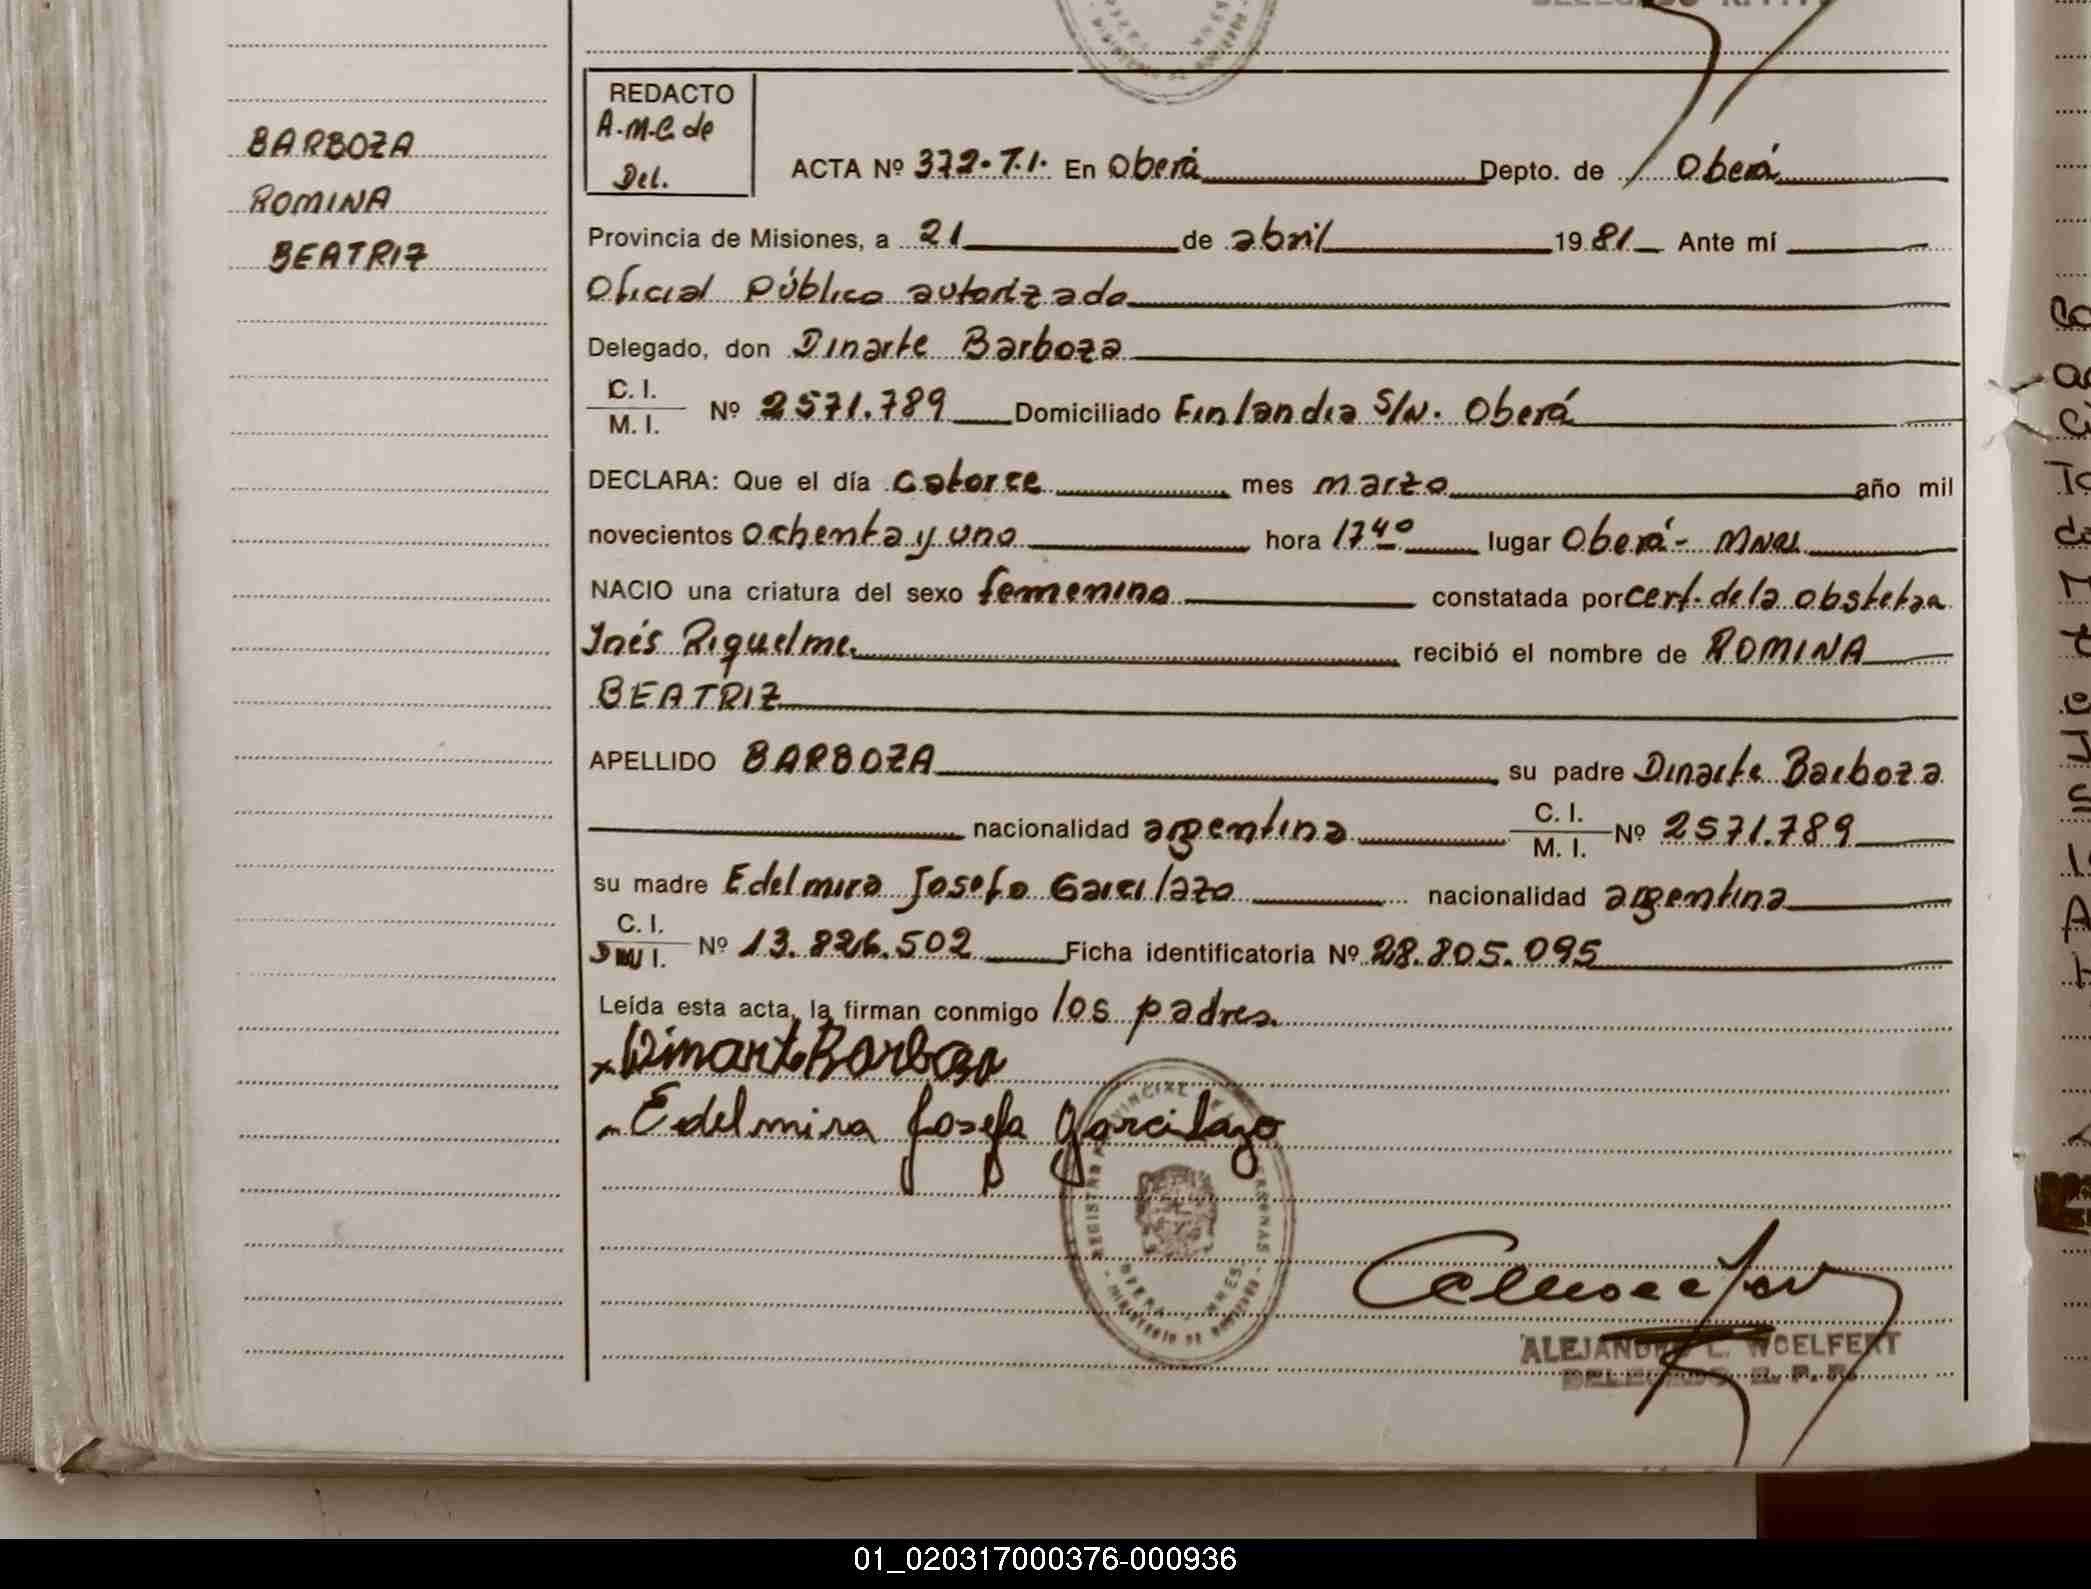 BARBOZA
ROMINA
BEATRIZ
REDACTO
A.M.C. de
Del.
ACTA Nº 372-T.I. En Oberá Depto. de Oberá
Provincia de Misiones, a 21 de abril 1981 Ante mí
Oficial Público autorizado
Delegado, don Dinarte Barboza
C. I.
M. I.
Nº 2571.789 Domiciliado Finlandia S/N. Oberá
DECLARA: Que el día catorce mes marzo año mil
novecientos ochenta y uno hora 17⁴⁰ lugar Oberá - Mnes
NACIO una criatura del sexo femenino constatada por cert. de la obstetra
Inés Riquelme. recibió el nombre de ROMINA
BEATRIZ
APELLIDO BARBOZA su padre Dinarte Barboza
nacionalidad argentina C. I.
M. I.
Nº 2571.789
su madre Edelmira Josefa Garcilazo nacionalidad argentina
C. I.
Nº 13.826.502 Ficha identificatoria Nº 28.805.095
Leída esta acta, la firman conmigo los padres.
Dinarte Barboza
Edelmira Josefa Garcilazo
REGISTRO PROVINCIAL DE LAS PERSONAS
OBERA MNES.
MINISTERIO DE GOBIERNO
ALEJANDRO L. WOELFERT
DELEGADO R. P. P.
01_020317000376-000936